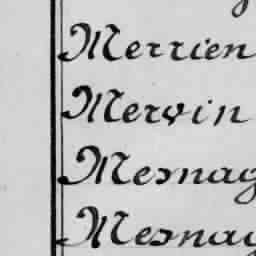 Merrien
Mervin
Mesnag
Mesnay